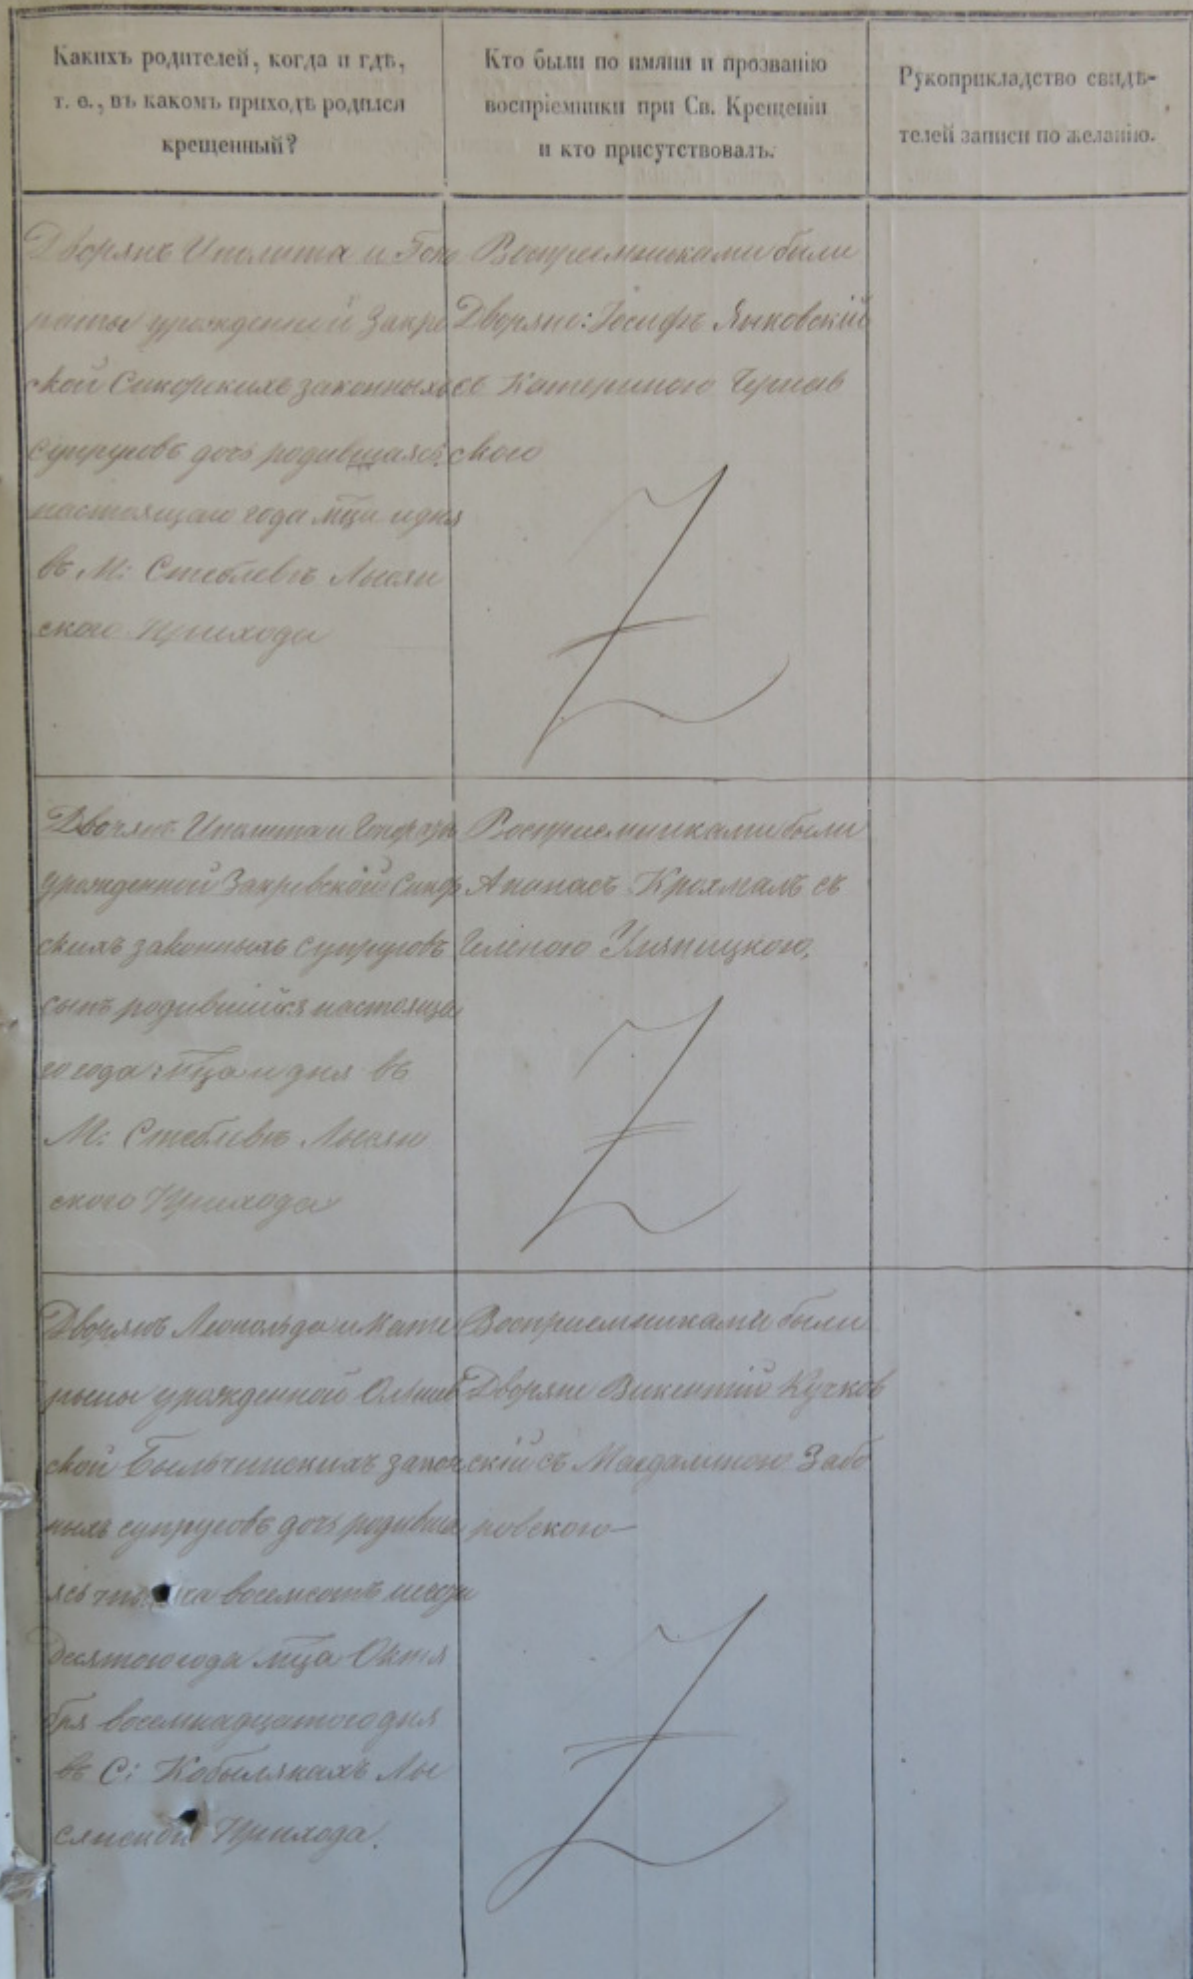 Какихъ родителей, когда и гдѣ,
т. е., въ какомъ приходѣ родился
крещенный?
Кто были по имяни и прозванію
воспріемники при Св. Крещеніи
и кто присутствовалъ.
Рукоприкладство свидѣ-
телей записи по желанію.
Дворянъ Иполита и Гоно
раты урожденной Закре
ской Сикорскихъ законныхъ
супруговъ дочь родившаяся
настоящаго года мца и дня
въ М: Стеблевѣ Лысян
ского Прихода
Воспріемниками были
Дворяне: Іосифъ Янковскій
съ Катериною
скою
Дворянъ Иполита и Гонораты
урожденной Закревской Сикор
скихъ законныхъ супруговъ
сынъ родившійся настояща
го года: мца и дня въ
М: Стеблевѣ Лысян
ского Прихода
Воспріемниками были
Апанасъ Крохмалъ съ
Геленою
Дворянъ Леопольда и Кате
рыны урожденной Ольшев
ской Быльчинскихъ закон
ныхъ супруговъ дочь родивша
яся восемсотъ шесть
десятого года мца Октя
бря восемнадцатого дня
въ С: Кобылякахъ Лы
сянского Прихода.
Воспріемниками были
Дворяне Викентій Кучков
скій съ Магдаленою Забо
ровскою